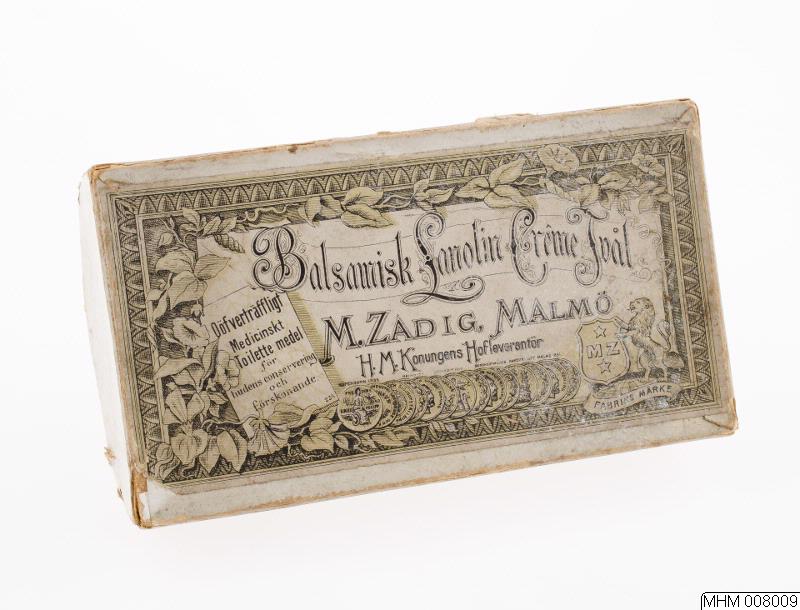 Balsamisk Lanolin-Crême Tvål
M. ZADIG, MALMÖ
H. M. Konungens Hofleverantör
Oöfverträffligt
Medicinskt
Toilette medel
för
hudens conservering
och
förskönande.
MZ
FABRIKS MÄRKE
MHM 008009